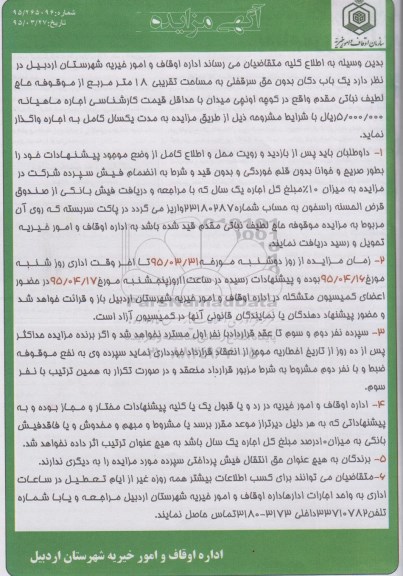 آگهی مزایده
شماره:۹۵/۲۶۵۰۹۶
تاریخ:۹۵/۰۳/۲۷
سازمان اوقاف و امور خیریه
بدین وسیله به اطلاع کلیه متقاضیان می رساند اداره اوقاف و امور خیریه شهرستان اردبیل در
نظر دارد یک باب دکان بدون حق سرقفلی به مساحت تقریبی ۱۸ متر مربع از موقوفه حاج
لطیف نباتی مقدم واقع در کوچه اونچی میدان با حداقل قیمت کارشناسی اجاره ماهیانه
۵/۰۰۰/۰۰۰ریال با شرایط مشروحه ذیل از طریق مزایده به مدت یکسال کامل به اجاره واگذار
نماید.
۱- داوطلبان باید پس از بازدید و رویت محل و اطلاع کامل از وضع موجود پیشنهادات خود را
بطور صریح و خوانا بدون قلم خوردگی و بدون قید و شرط به انضمام فیش سپرده شرکت در
مزایده به میزان ۱۰٪مبلغ کل اجاره یک سال که با مراجعه و دریافت فیش بانکی از صندوق
قرض الحسنه راسخون به حساب شماره۲۳۱۸۰۲۸۷واریز می گردد در پاکت سربسته که روی آن
مربوط به مزایده موقوفه حاج لطیف نباتی مقدم قید شده باشد به اداره اوقاف و امور خیریه
تحویل و رسید دریافت نمایند.
۲- زمان مزایده از روز دوشنبه مورخه۹۵/۰۳/۳۱تا آخر وقت اداری روز شنبه
مورخ۹۵/۰۴/۱۶بوده و پیشنهادات رسیده در ساعت۱۱روزپنجشنبه مورخ۹۵/۰۴/۱۷در حضور
اعضای کمیسیون متشکله در اداره اوقاف و امور خیریه شهرستان اردبیل باز و قرائت خواهد شد
و حضور پیشنهاد دهندگان یا نمایندگان قانونی آنها در کمیسیون آزاد است.
۳- سپرده نفر دوم و سوم تا عقد قراردادبا نفر اول مسترد نخواهد شد و اگر برنده مزایده حداکثر
پس از ده روز از تاریخ اخطاریه موجر از انعقاد قرارداد خودداری نماید سپرده وی به نفع موقوفه
ضبط و با نفر دوم مشروط به شرط مزبور قرارداد منعقد و در صورت تکرار به همین ترتیب با نفر
سوم.
۴- اداره اوقاف و امور خیریه در رد و یا قبول یک یا کلیه پیشنهادات مختار و مجاز بوده و به
پیشنهاداتی که به هر دلیل دیرتراز موعد مقرر برسد یا مشروط و مبهم و مخدوش و یا فاقدفیش
بانکی به میزان۱۰درصد مبلغ کل اجاره یک سال باشد به هیچ عنوان ترتیب اثر داده نخواهد شد.
۵- برندگان به هیچ عنوان حق انتقال فیش پرداختی سپرده مورد مزایده را به دیگری ندارند.
۶-متقاضیان می توانند برای کسب اطلاعات بیشتر همه روزه غیر از ایام تعطیل در ساعات
اداری به واحد اجارات ادارهاداره اوقاف و امور خیریه شهرستان اردبیل مراجعه و یابا شماره
تلفن۳۳۷۱۰۷۸۲داخلی ۳۱۷۳-۳۱۸۰تماس حاصل نمایند.
اداره اوقاف و امور خیریه شهرستان اردبیل